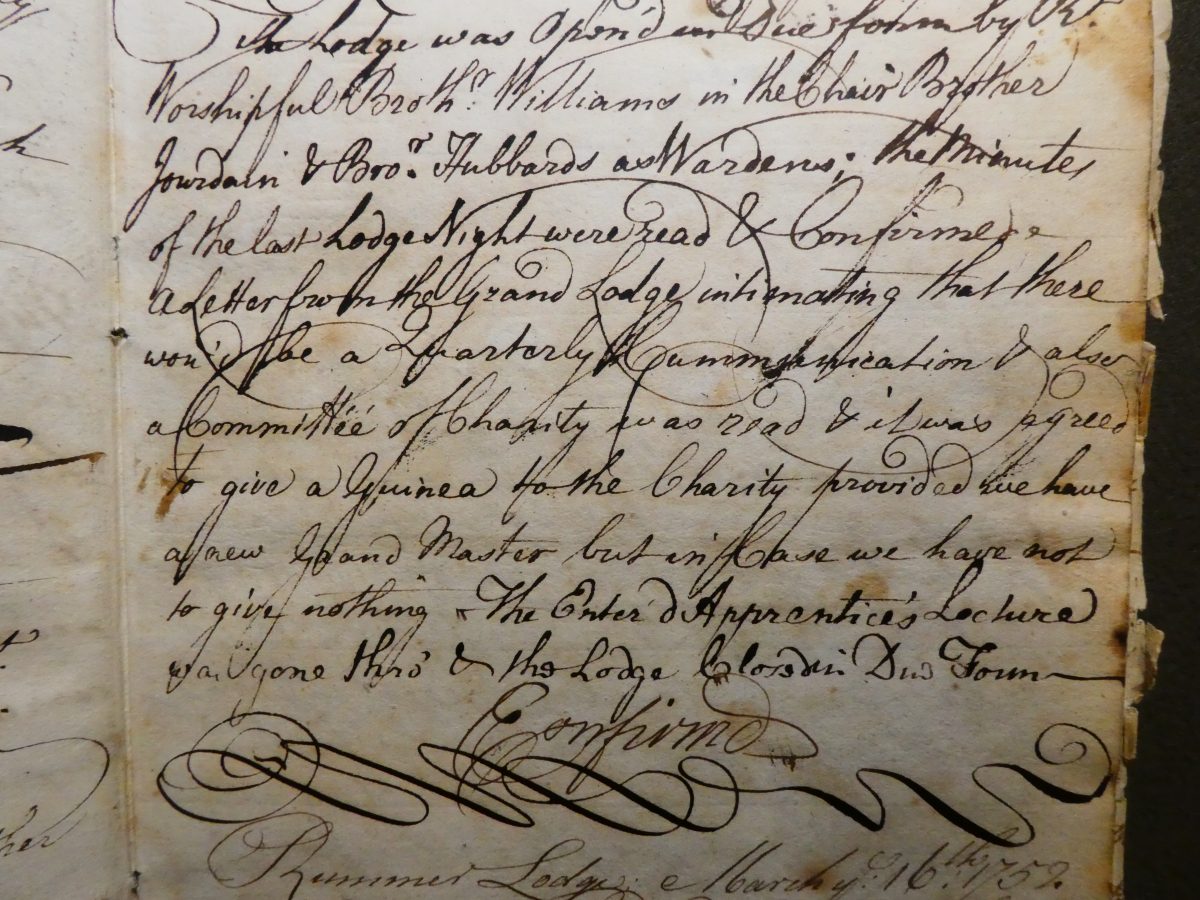 the Lodge was Open'd in Due form by Rt.
Worshipful Brothr. Williams in the Chair Brother
Jourdain & Bror. Hubbards as Wardens; the Minutes
of the last Lodge Night were read & Confirmed
a Letter from the Grand Lodge intimating that there
wou'd be a Quarterly Cummunication & also
a Committéé of Charity was read & it was agreed
to give a Guinea to the Charity provided we have
a new Grand Master but in Case we have not
to give nothing The Enter'd Apprentice's Lecture
was gone thro' & the Lodge Closed in Due Form
Confirmd
Rummer Lodge March ye. 16th. 1752.